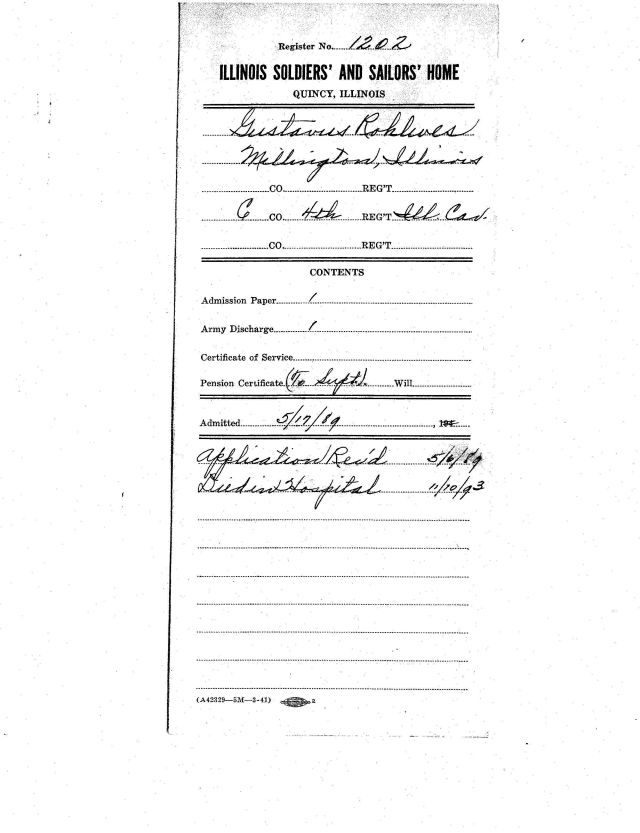 Register No. 1202
ILLINOIS SOLDIERS' AND SAILORS' HOME
QUINCY, ILLINOIS
Gustavus Rohlwes
Millington, Illinois
CO. REG'T.
C CO. 4th REG'T Ill. Cav.
CO. REG'T.
CONTENTS
Admission Paper 1
Army Discharge 1
Certificate of Service
Pension Certificate (To Supt). Will
Admitted 5/17/89 , 194
Application Rec'd 5/6/89
Died in Hospital 11/10/93
(A42329—5M—3-41) 2